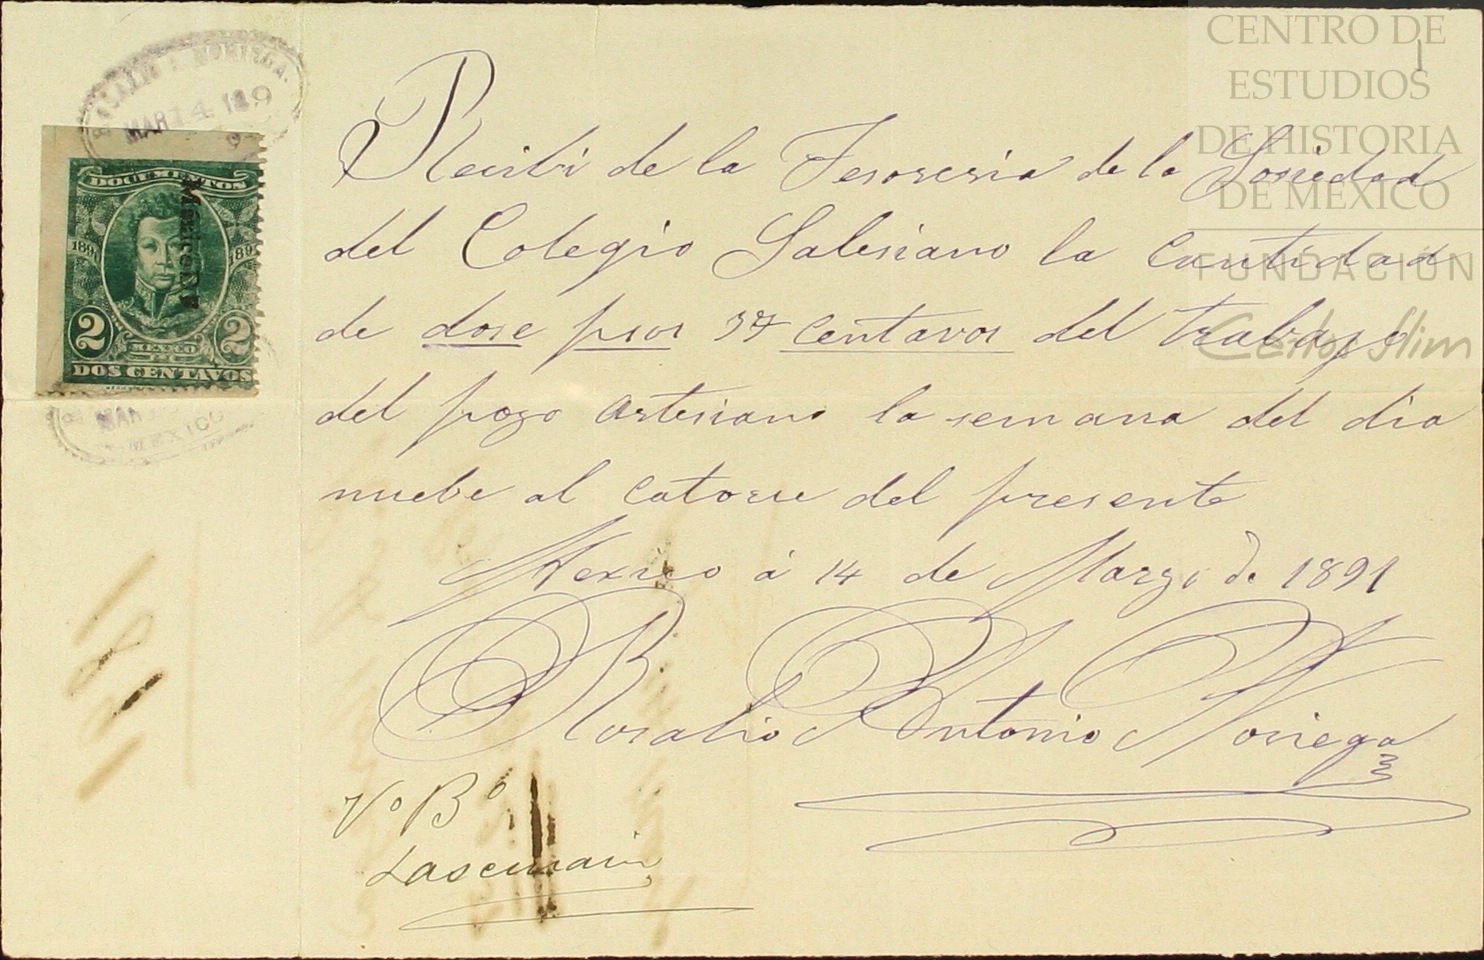 CENTRO DE
ESTUDIOS
DE HISTORIA
DE MEXICO
FUNDACIÓN
Carlos Slim
1
NORIEGA.
MAR 14 189
DOCUMENTOS
MEXICO
1891 189
2 2
MEXICO
DOS CENTAVOS
MAR
MEXICO
Recibi de la Tesoreria de la Sosiedad
del Colegio Salesiano la Cantidad
de dose psos 37 centavos del trabajo
del pozo artesiano la semana del dia
nuebe al catorse del presente
Mexico á 14 de Marzo de 1891
Rosalio Antonio Noriega
Vo Bo
Lascurain